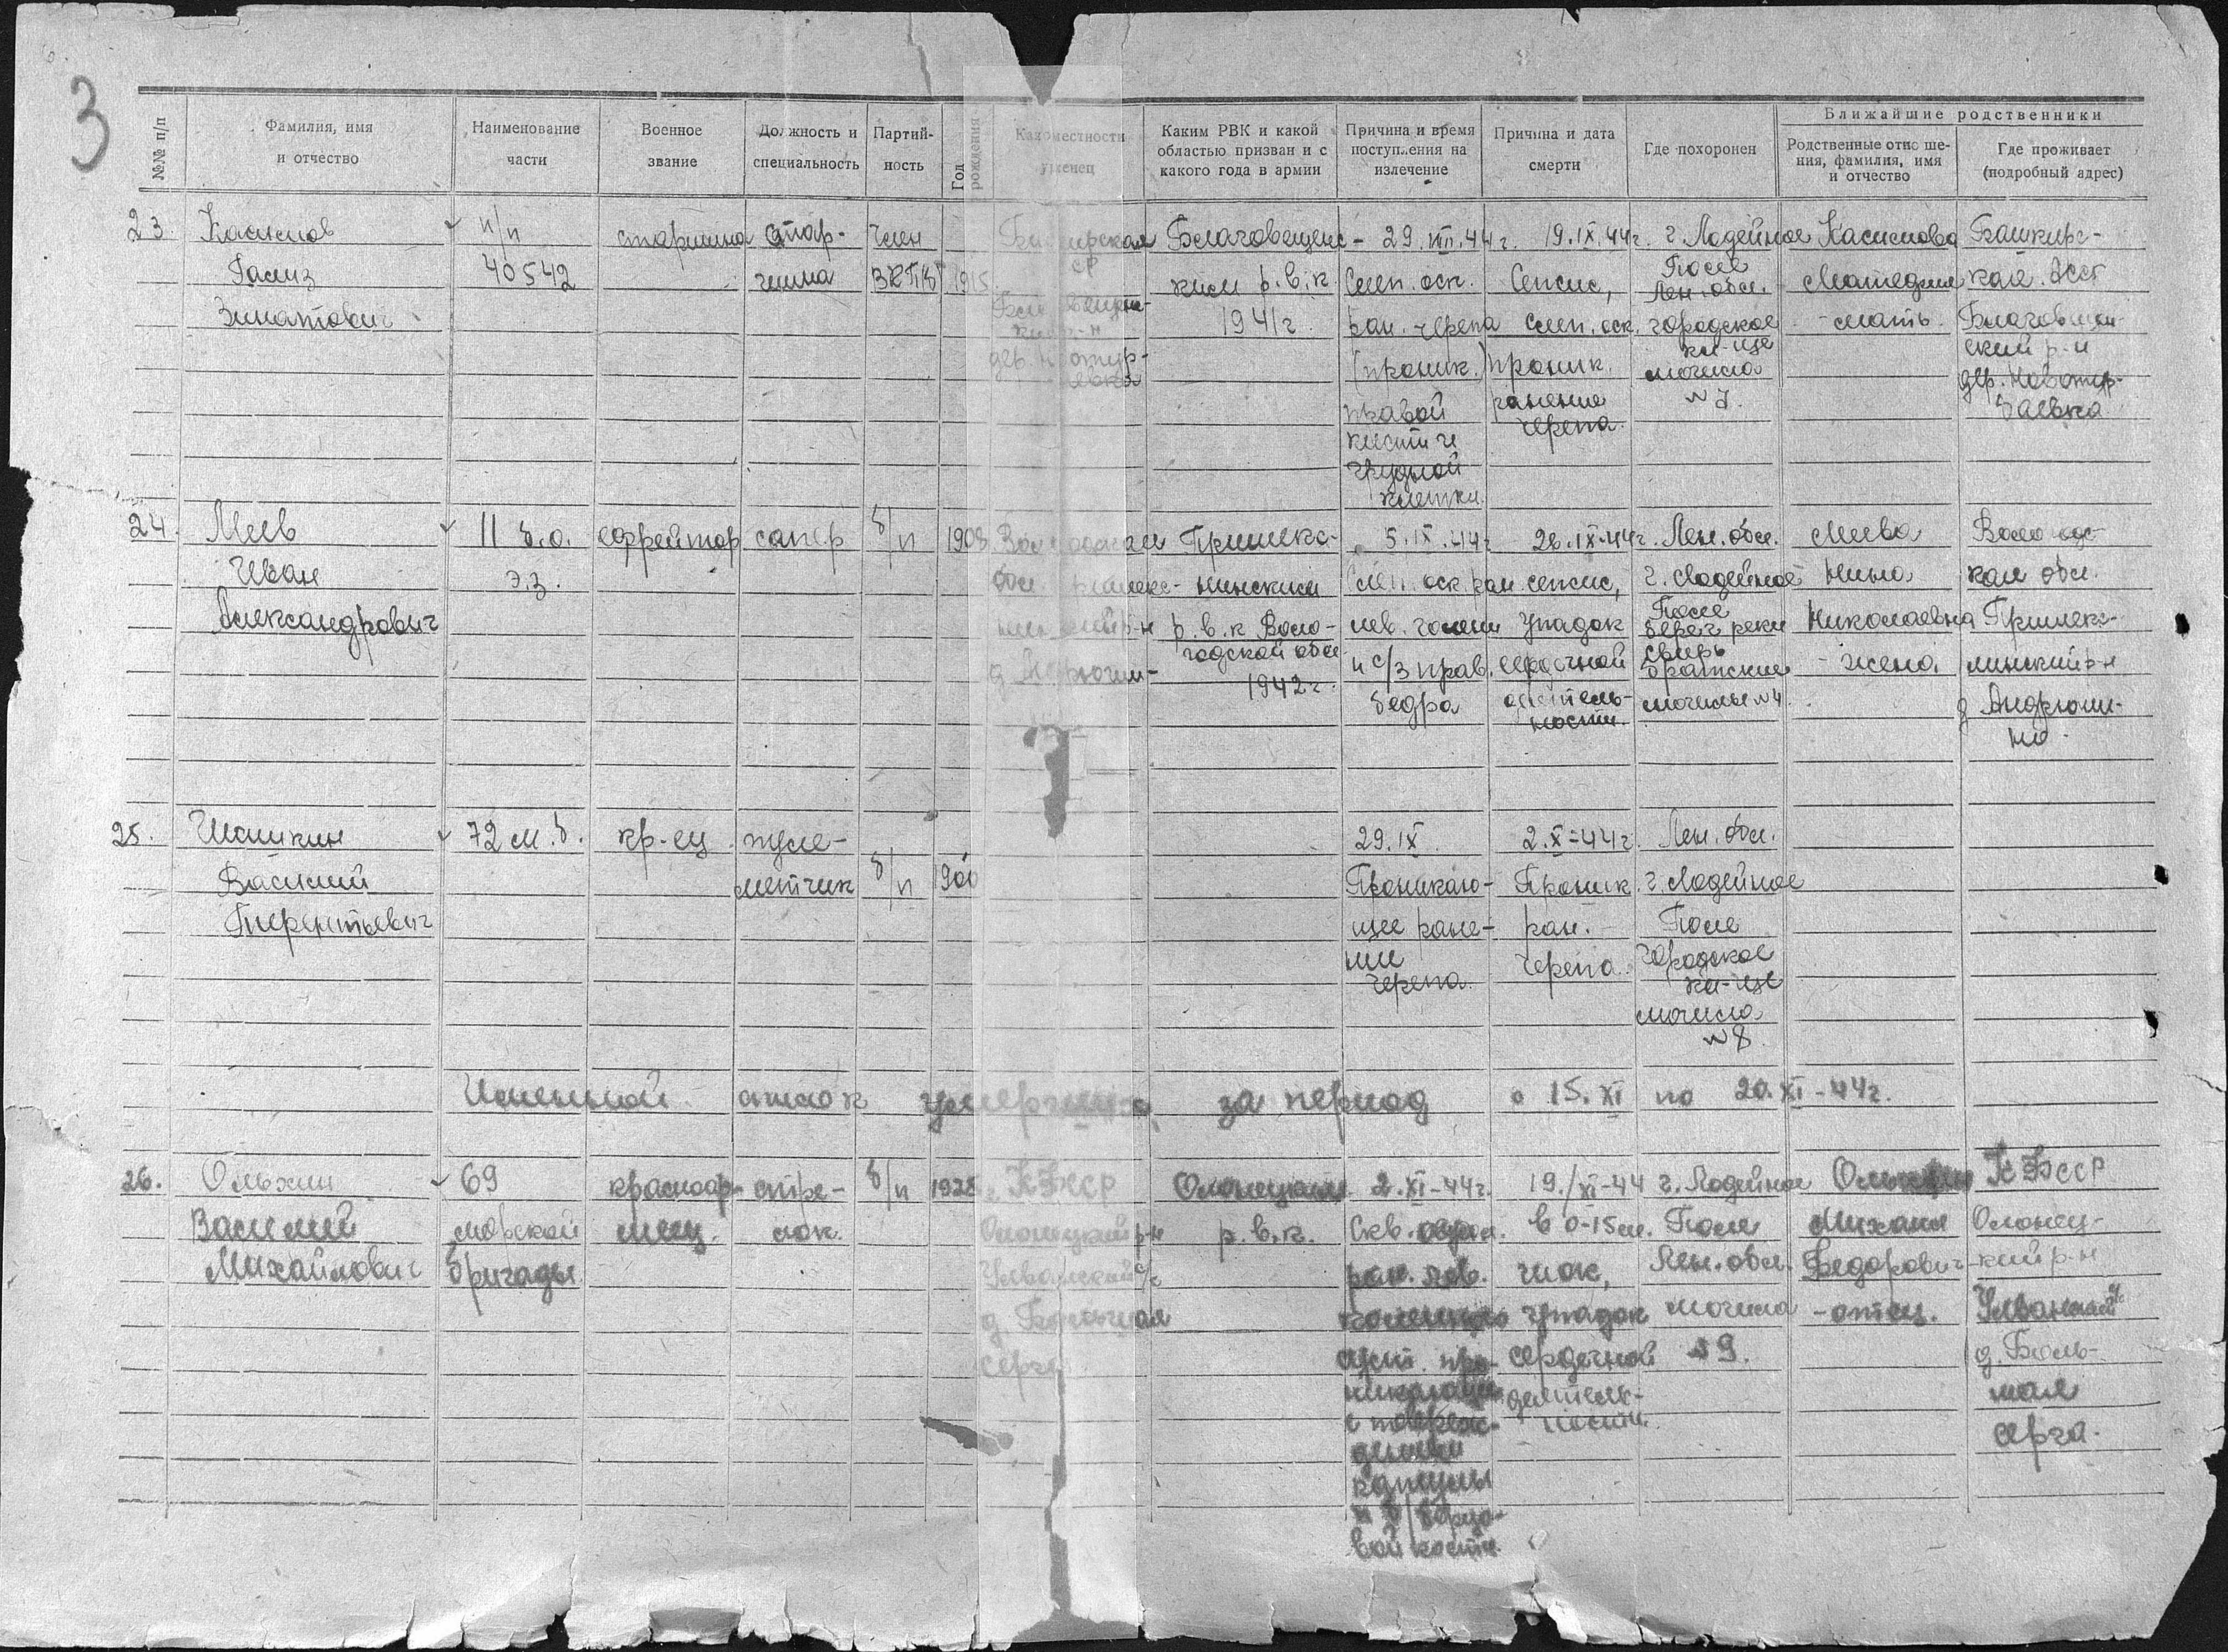 3
№№ п/п
Фамилия, имя и отчество
Наименование части
Военное звание
Должность и специальность
Партий-ность
Год рождения
Какой местности уроженец
Каким РВК и какой областью призван и с какого года в армии
Причина и время поступления на излечение
Причина и дата смерти
Где похоронен
Ближайшие родственники
Родственные отношения, фамилия, имя и отчество
Где проживает (подробный адрес)
23.
Касимов
Зинатович
п/п
40542
старшина
стар-
шина
Член
ВКП(б)
1915
Благовещенс-
ким р.в.к.
1941 г.
29.VIII.44г.
Слеп. оск.
ран. черепа
(проник.)
правой
кисти и
грудной
клетки.
19.IX.44г.
Сепсис,
Слеп. оск.
проник.
ранение
черепа.
г. Лодейное
Поле
Лен. обл.
городское
кл-ще
могила
№ 7.
Касимова
- мать.
Башкирс-
кая АССР
Благовещен-
ский р-н
24.
Меев
Иван
Александрович
11 б.о.
э.з.
ефрейтор
сапер
б/п
1908
р.в.к Воло-
годской обл
1942г.
5.IX.44г
Слеп. оск. ран.
лев. голени
и с/3 прав.
бедра
сепсис,
Упадок
сердечной
деятель-
ности.
Лен. обл.
г. Лодейное
Поле
берег реки
Свирь
братские
могилы №4
Меева
Нина
Николаевна
- жена.
Вологодс-
кая обл.
д Андрюши-
но.
25.
Шашкин
Василий
Терентьевич
72 м.б.
кр-ец
пуле-
метчик
б/п
1900
29.IX.
Проникаю-
щее ране-
ние
черепа.
2.X-44г.
Проник
ран.
черепа.
Лен. обл.
г. Лодейное
Поле
Городское
кл-ще
могила
№8.
Именной список умерших за период с 15.XI по 20.XI-44г.
26.
Ольхин
Василий
Михайлович
69
морской
бригады
красноар-
меец.
стре-
лок.
б/п
К-ФССР
Олонецкий р-н
д. Большая
Серга
Олонецким
р.в.к.
2.XI-44г.
Скв. оскол.
ран. лев.
коленного
суст. про-
никающее
с повреж-
дением
капсулы
и б/берцо-
вой кости.
19./XI-44
в 0-15м.
шок,
упадок
сердечной
деятель-
ности.
г. Лодейное
Поле
Лен. обл.
могила
№9.
Ольхин
Михаил
Федорович
- отец.
К-ФССР
Олонец-
кий р-н
д. Боль-
шая
Серга.